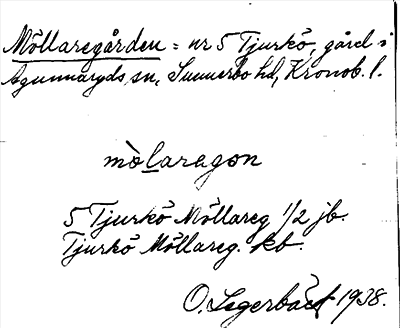 Möllaregården = nr 5 Tjurkö, gård i
Agunnaryds sn, Sunnerbo hd, Kronob. l.
mòlaragon
5 Tjurkö Möllareg 1/2 jb.
Tjurkö Möllareg. kb.
O. Legerbäck 1938.